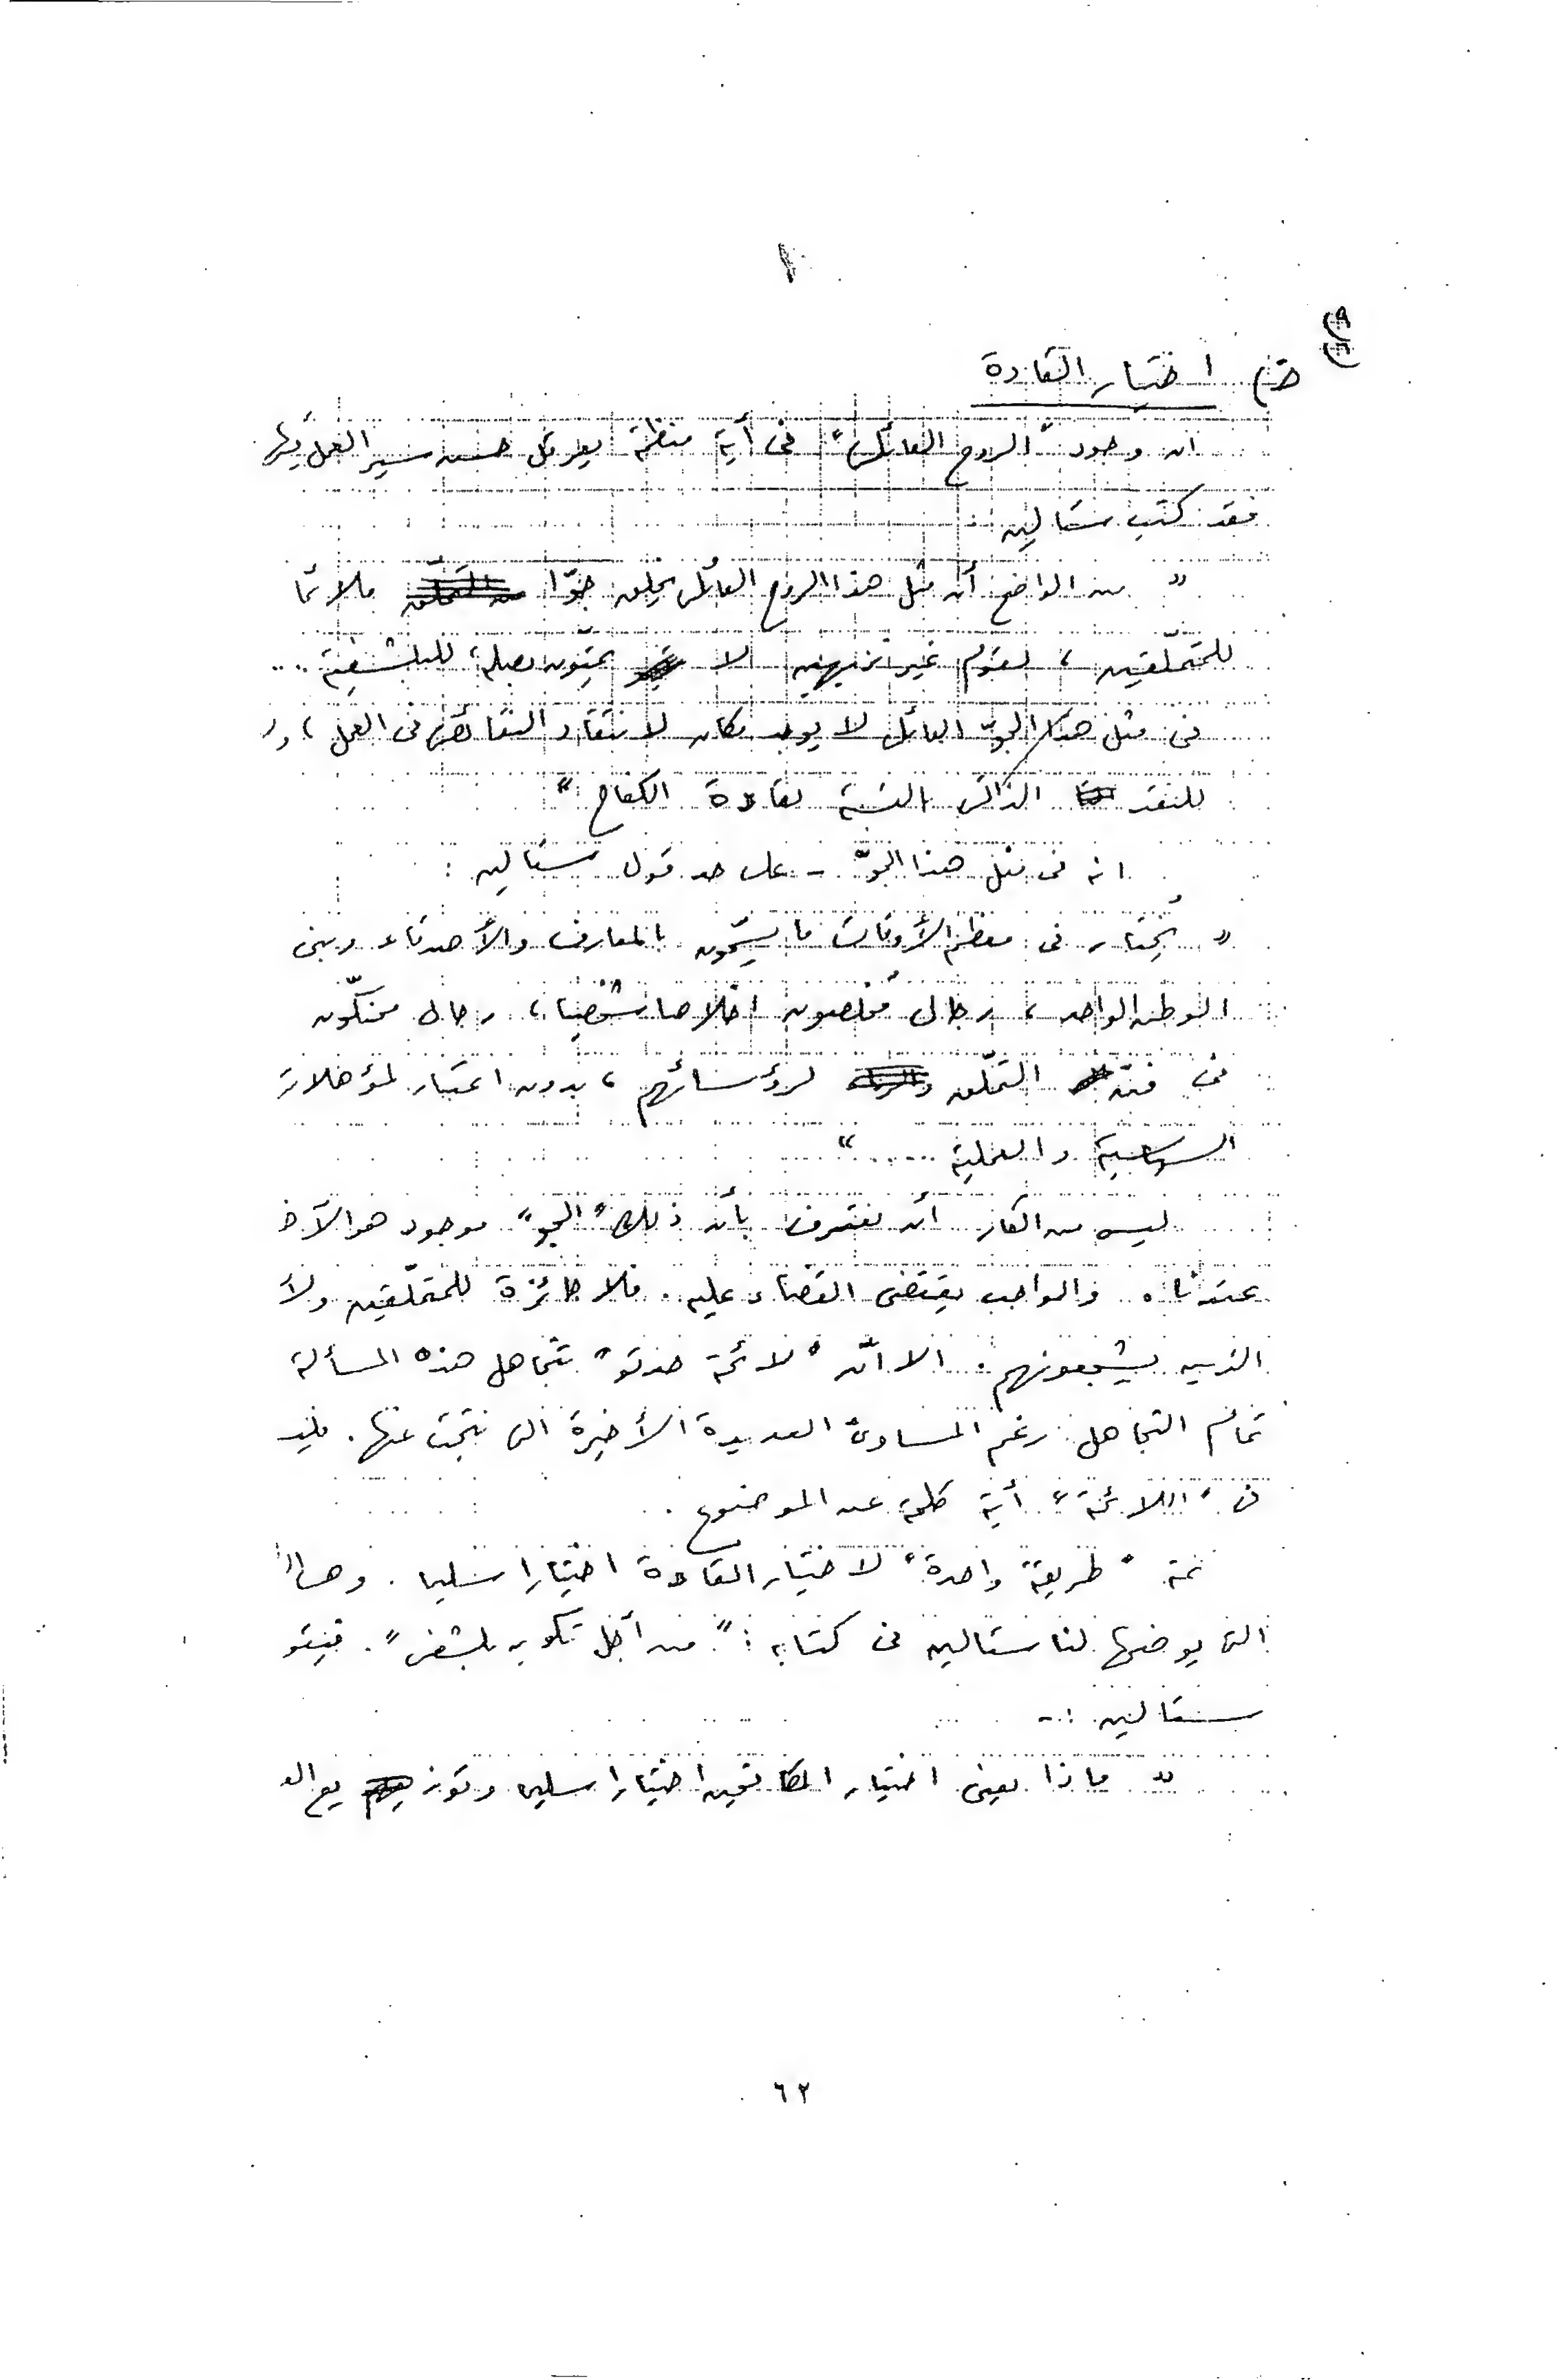 اختيار القادة
ان وجود "الروح العائلى" فى أية منظمة يعرقل حسن سير العمل
فقد كتب ستالين :
" من الواضح أن مثل هذا الروح العائلى يخلق جوّا ملائما
للمتملّقين ، لقوم غير نزيهين لا يمتّون بصلة للبلشفية ...
فى مثل هذا الجوّ العائلى لا يوجد مكان لانتقاد النقائص فى العمل ، ولا
للنقد الذاتى بالنسبة لقادة الكفاح "
انه فى مثل هذا الجوّ - على حد قول ستالين :
" يُختار فى معظم الأوقات ما يسمّون بالمعارف والأصدقاء وبنى
الوطن الواحد ، رجال مُخلصون اخلاصا شخصيّا ، رجال محنّكون
فى فن التملّق لرؤسائهم ، بدون اعتبار لمؤهلات
السياسية والعملية ...... "
ليس من العار أن نعترف بأن ذلك "الجو" موجود هو الآخر
عندنا . والواجب يقتضى القضاء عليه . فلا جائزة للمتملّقين ولا
الذين يشجعونهم . الا انّ "لائحة حدتو" تتجاهل هذه المسألة
تمام التجاهل رغم المساوئ العديدة الأخيرة التى نتجت عنها . فليس
فى "اللائحة" أية كلمة عن الموضوع .
ثمة "طريقة واحدة" لاختيار القادة اختيارا سليما . وهى
التى يوضحها لنا ستالين فى كتابه : " من أجل تكوين بلشفى " . فيقول
ستالين :-
" ماذا يعنى اختيار المكافحين اختيارا سليما وتوزيع
٦٢